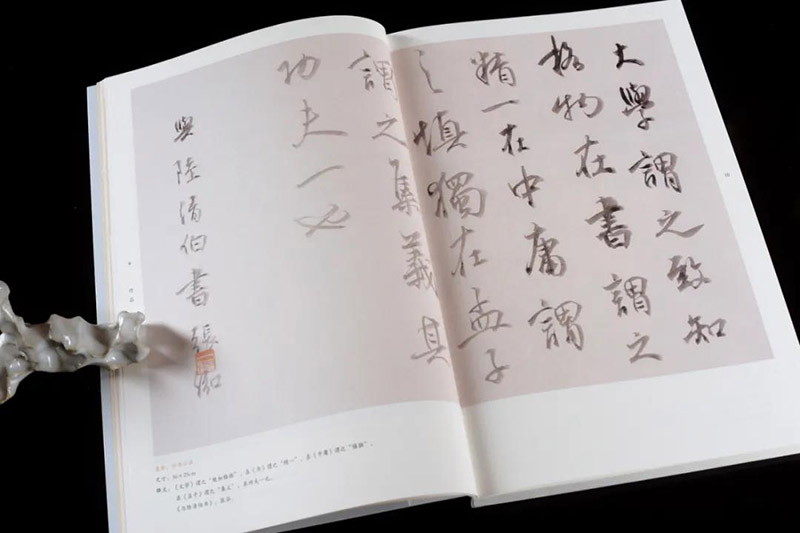 大學謂之致知
格物在書謂之
精一在中庸謂
之慎獨在孟子
謂之集義其
功夫一也
與陸清伯書 張
尺寸：
释文：《大学》谓之“致知格物”，在《书》谓之“精一”，在《中庸》谓之“慎独”，
在《孟子》谓之“集义”，其功夫一也。
《与陆清伯书》，张